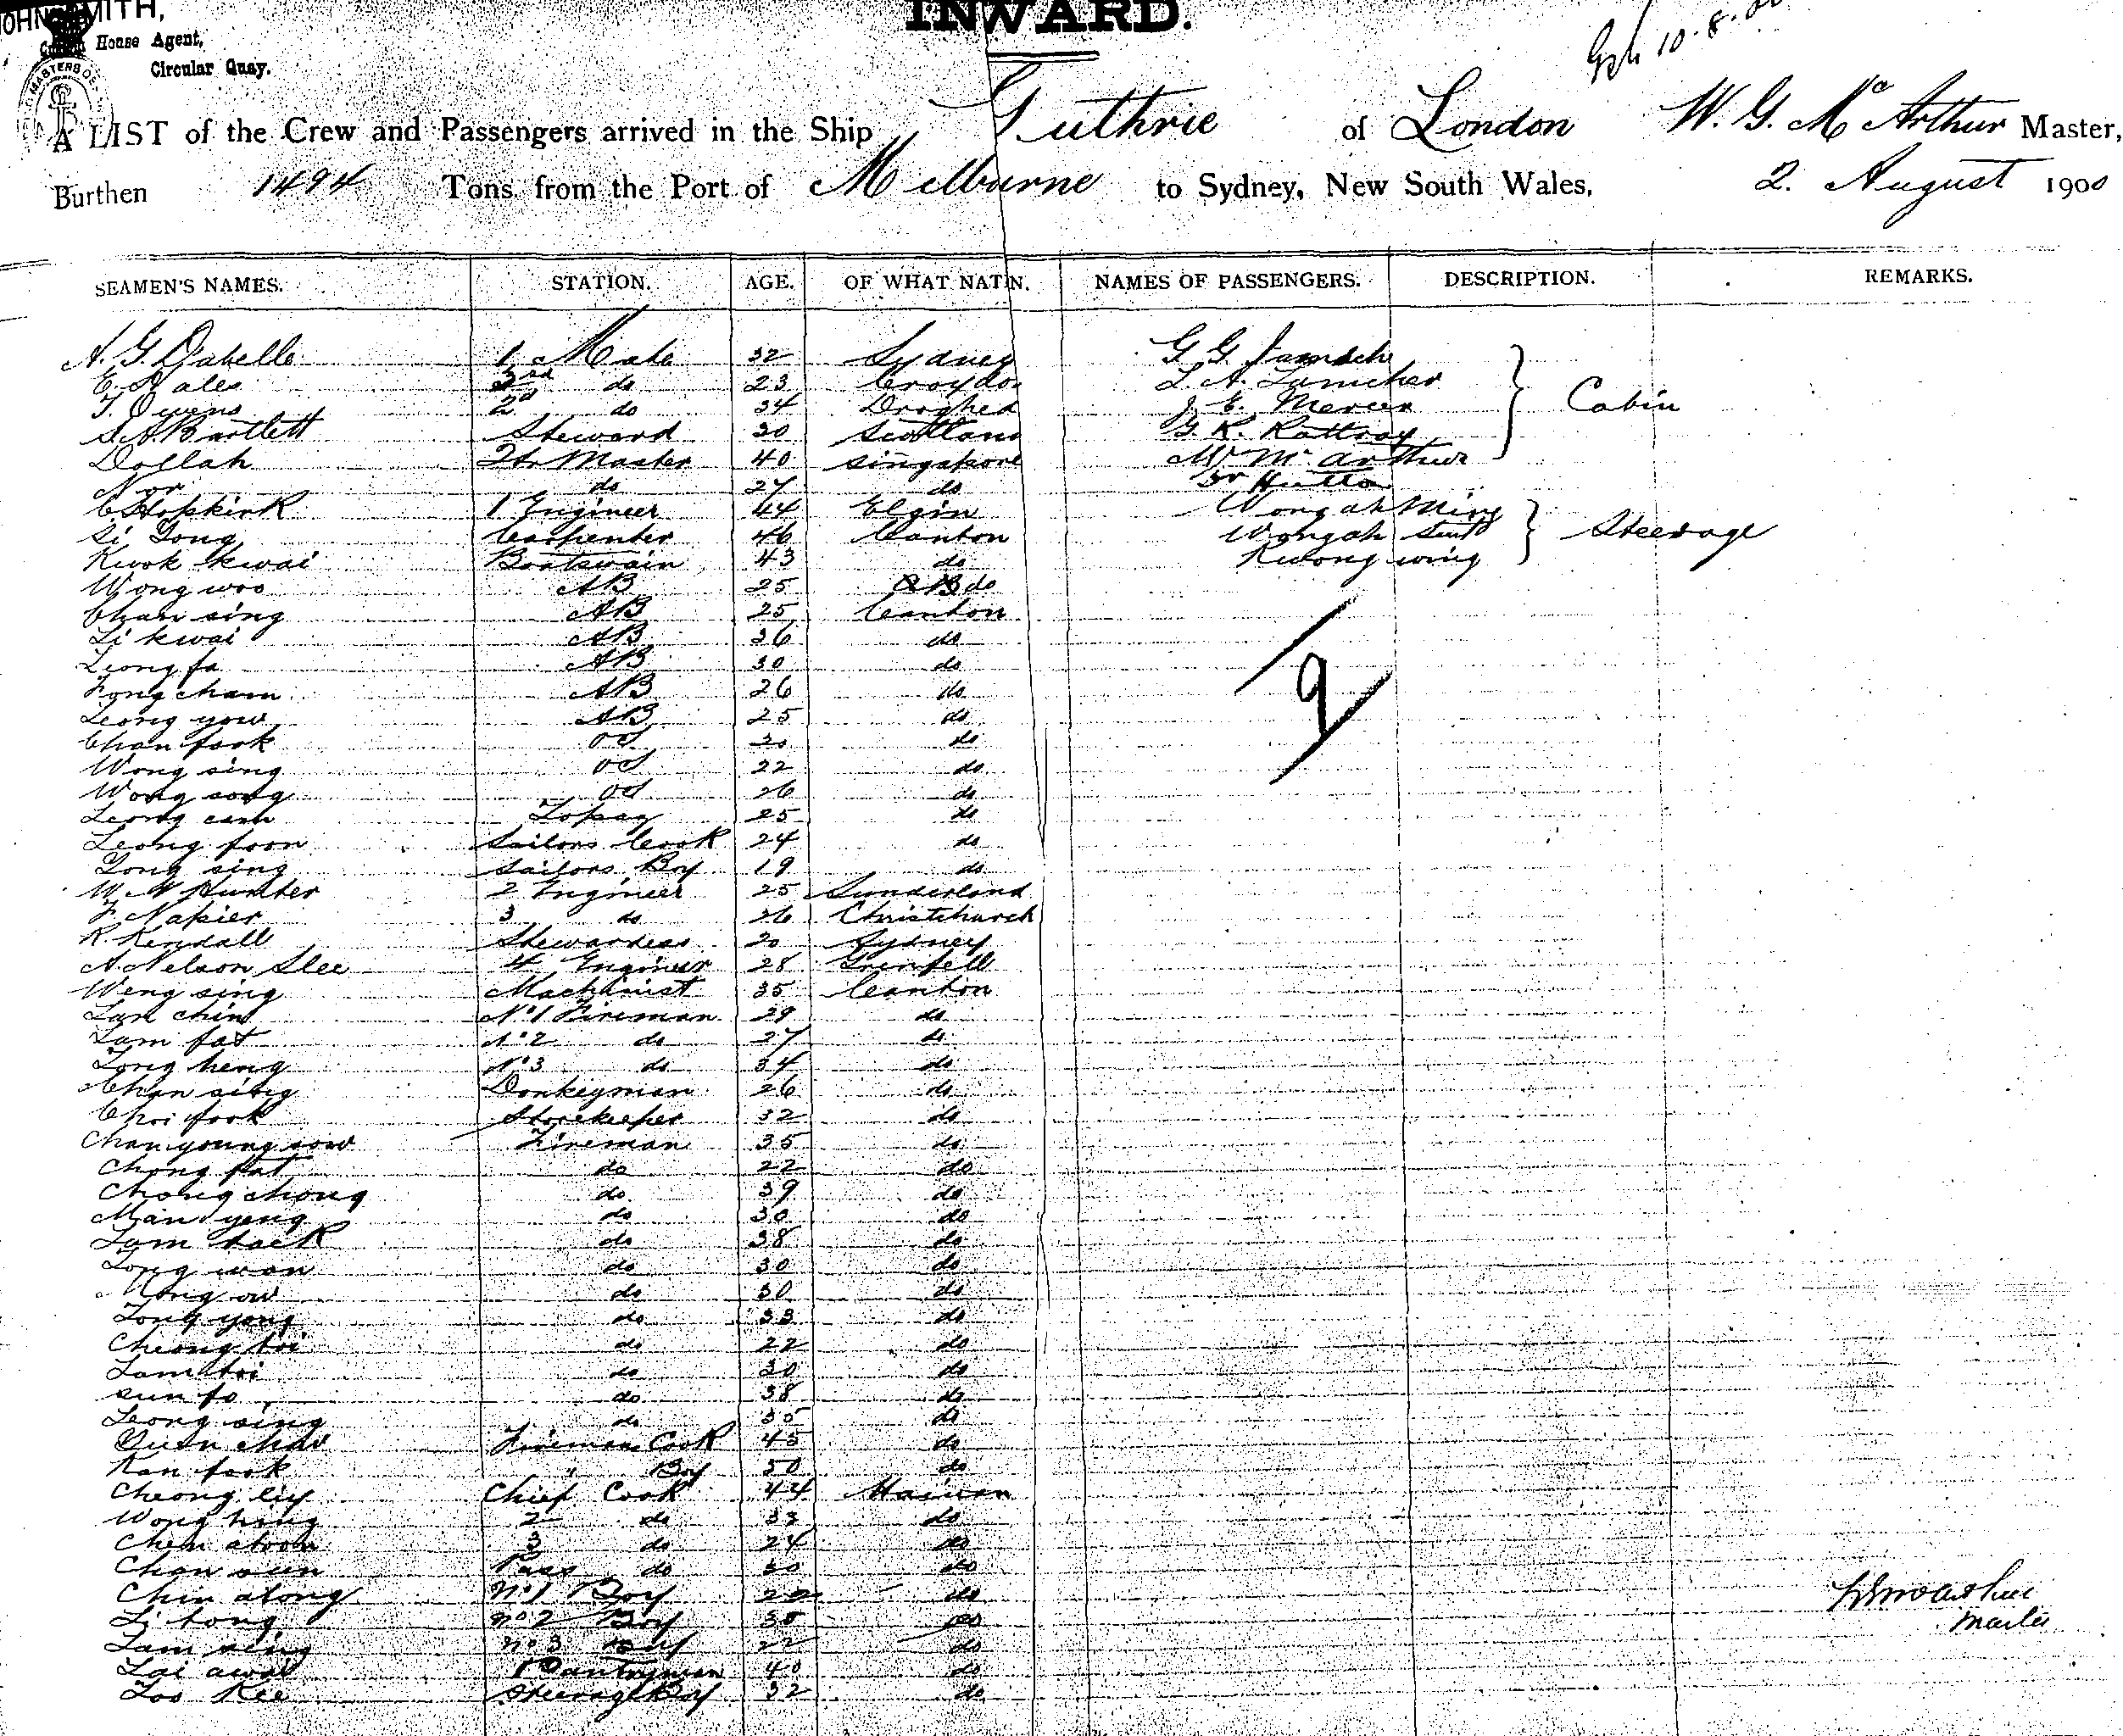 INWARD.
JOHN SMITH,
Custom House Agent,
Circular Quay.
10-8-00
A LIST of the Crew and Passengers arrived in the Ship Guthrie of London W. G. McArthur Master,
Burthen 1494 Tons from the Port of Melburne to Sydney, New South Wales, 2. August 1900
SEAMEN'S NAMES. STATION. AGE. OF WHAT NATN. NAMES OF PASSENGERS. DESCRIPTION. REMARKS.
A. G. Dabelle 1 Mate 32 Sydney G G
E. Hales 3rd do 23 Croydon L. A.
T. Owens 2d do 34 Drogheda J. E. Mercer Cabin
S. A. Bartlett Steward 30 Scotland G. R. Rattray
Dollah Qtr Master 40 Singapore Mr McArthur
Nor do 27 do Dr Hutton
C Hopkirk 1 Engineer 44 Elgin Wong ah Ming
Li Tong Carpenter 46 Canton Wong ah Steerage
Kwok Kwai Boatswain 43 do Kwong wing
Wong woo AB 25 do
Chan sing AB 25 Canton
Li kwai AB 26 do
Leong fa AB 30 do
Fong cham AB 26 do
Leong yow AB 25 do
2
Chan fook OS 20 do
Wong sing OS 22 do
Wong song OS 26 do
Leong cam Topaz 25 do
Leong foon Sailors Cook 24 do
Tong sing Sailors Boy 19 do
W. W Hunter 2 Engineer 25 Sunderland
F. Napier 3 do 26 Christchurch
R. Kendall Stewardess 20 Sydney
A. Nelson Slee 4 Engineer 28 Grenfell
Weng sing Machinist 35 Canton
Lan chin No 1 Fireman 29 do
Lam fat No 2 do 27 do
Tong heng No 3 do 34 do
Chan sing Donkeyman 26 do
Choi fook Storekeeper 32 do
Chan young sow Fireman 35 do
Chong fat do 22 do
Chong chong do 39 do
Man yeng do 30 do
Lam tack do 38 do
Tong won do 30 do
Nong ow do 30 do
Tong yong do 33 do
Cheong toi do 22 do
Lam toi do 30 do
Sun fo do 38 do
Leong sing do 35 do
Quan chav Fireman Cook 45 do
Kan fook " Boy 50 do
Cheong liy Chief Cook 44 Hainan
Wong hing 2 do 33 do
Chem atoon 3 do 24 do
Chan sun Pass do 30 do
Chin atong No 1 Boy 22 do
Li tong No 2 Boy 35 do
Lam sing No 3 Boy 22 do
Lai Pantryman 40 do
Loo Kee Steerage Boy 32 do
W G McArthur
Master